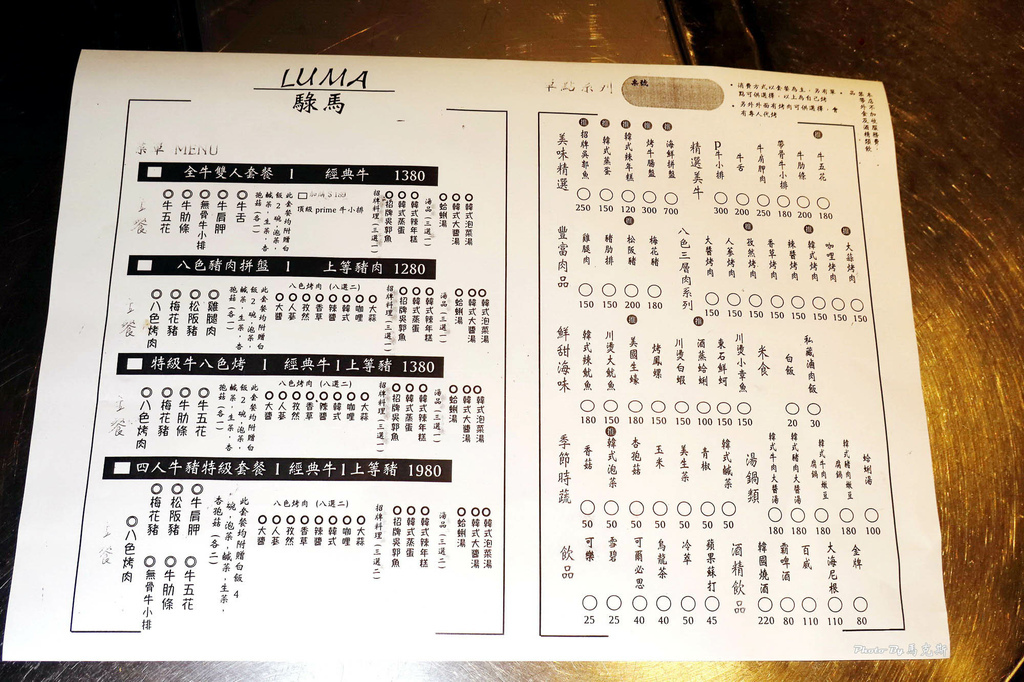 LUMA
騄馬
菜單 MENU
全牛雙人套餐 | 經典牛 1380
主餐
牛五花
牛肋條
無骨牛小排
牛肩胛
牛舌
此套餐均附贈白飯2碗,泡菜,鹹菜,生菜,杏孢菇(各一)
加購 $189
頂級 prime 牛小排
招牌料理(三選一)
招牌吳郭魚
韓式蒸蛋
韓式辣年糕
湯品(三選一)
蛤蜊湯
韓式大醬湯
韓式泡菜湯
八色豬肉拼盤 | 上等豬肉 1280
主餐
八色烤肉
梅花豬
松阪豬
雞腿肉
此套餐均附贈白飯2碗,泡菜,鹹菜,生菜,杏孢菇(各一)
八色烤肉 (八選二)
大醬
人蔘
孜然
香草
辣醬
韓式
咖哩
大蒜
招牌料理(三選一)
招牌吳郭魚
韓式蒸蛋
韓式辣年糕
湯品(三選一)
蛤蜊湯
韓式大醬湯
韓式泡菜湯
特級牛八色烤 | 經典牛|上等豬 1380
主餐
八色烤肉
梅花豬
牛肋條
牛五花
此套餐均附贈白飯2碗,泡菜,鹹菜,生菜,杏孢菇(各一)
八色烤肉 (八選二)
大醬
人蔘
孜然
香草
辣醬
韓式
咖哩
大蒜
招牌料理(三選一)
招牌吳郭魚
韓式蒸蛋
韓式辣年糕
湯品(三選一)
蛤蜊湯
韓式大醬湯
韓式泡菜湯
四人牛豬特級套餐 | 經典牛|上等豬 1980
主餐
八色烤肉
梅花豬
松阪豬
牛肩胛
無骨牛小排
牛肋條
牛五花
此套餐均附贈白飯4碗,泡菜,鹹菜,生菜,杏孢菇(各二)
八色烤肉 (八選二)
大醬
人蔘
孜然
香草
辣醬
韓式
咖哩
大蒜
招牌料理(三選二)
招牌吳郭魚
韓式蒸蛋
韓式辣年糕
湯品(三選二)
蛤蜊湯
韓式大醬湯
韓式泡菜湯
單點系列
桌號
•消費方式以套餐為主,另有單點可供選擇,以上為自己烤
•另外外面有烤肉可供選擇,會有專人代烤
•本店不加收服務費,禁帶外食及酒精類飲品
美味精選
推 招牌吳郭魚 250
推 韓式蒸蛋 150
推 韓式辣年糕 120
推 烤牛腸盤 300
推 海鮮拼盤 700
精選美牛
P牛小排 300
牛舌 200
牛肩胛肉 250
帶骨牛小排 180
牛肋條 200
推 牛五花 180
豐富肉品
雞腿肉 150
豬肋排 150
推 松阪豬 200
梅花豬 180
八色三層肉系列
大醬烤肉 150
人蔘烤肉 150
推 孜然烤肉 150
香草烤肉 150
辣醬烤肉 150
推 韓式烤肉 150
咖哩烤肉 150
推 大蒜烤肉 150
鮮甜海味
韓式辣魷魚 180
川燙大魷魚 150
推 美國生蠔 180
烤鳳螺 150
川燙白蝦 150
推 酒蒸蛤蜊 100
東石鮮蚵 150
川燙小章魚 150
米食
白飯 20
私藏滷肉飯 30
季節時蔬
香菇 50
推 韓式泡菜 50
杏孢菇 50
玉米 50
美生菜 50
青椒 50
韓式鹹菜 50
湯鍋類
韓式牛肉大醬湯 180
韓式豬肉大醬湯 180
韓式牛肉嫩豆腐鍋 180
韓式豬肉嫩豆腐鍋 180
蛤蜊湯 100
飲品
可樂 25
雪碧 25
可爾必思 40
烏龍茶 40
冷萃 50
蘋果蘇打 45
酒精飲品
韓國燒酒 220
霸啤酒 80
百威 110
大海尼根 110
金牌 80
Photo By 馬克斯